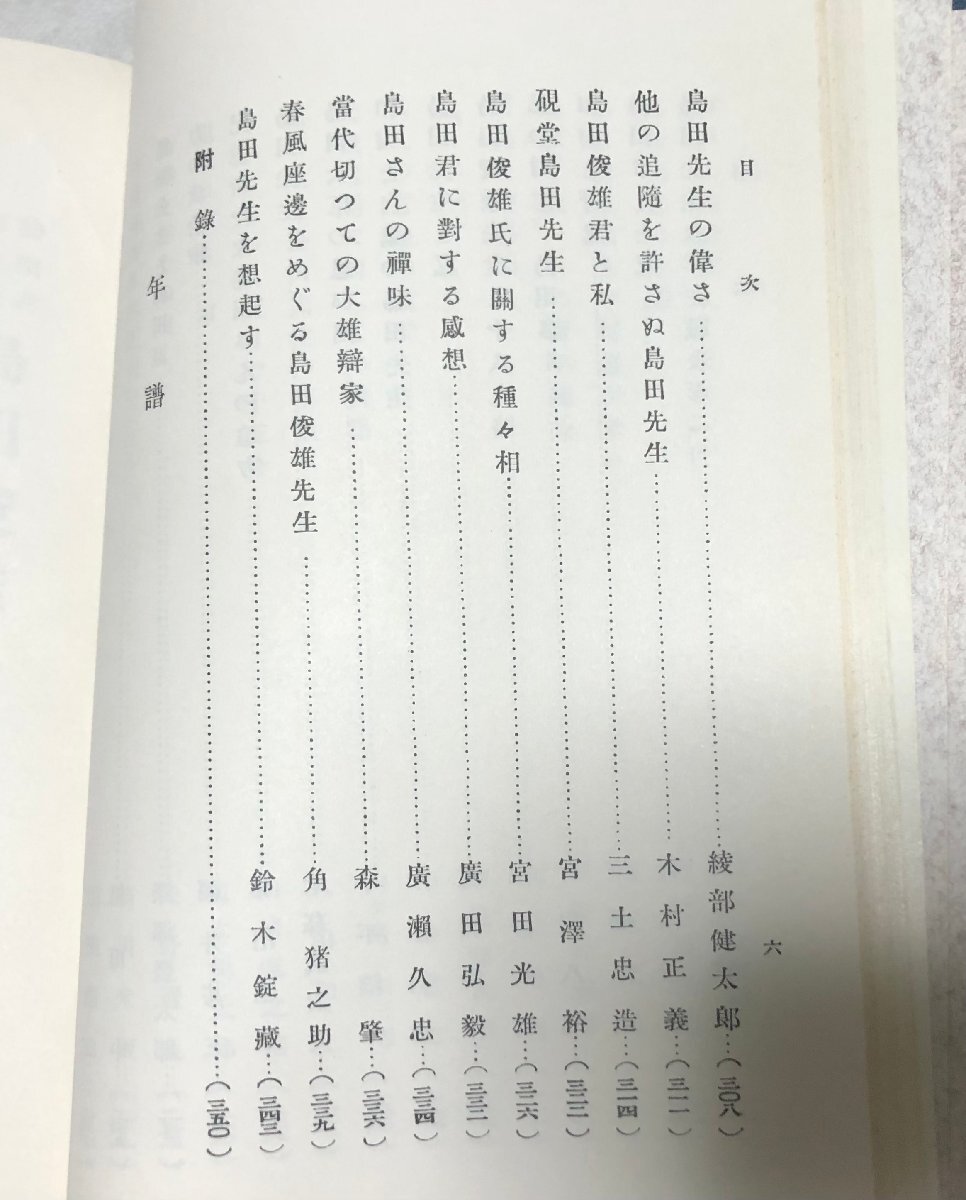 目次 六
島田先生の偉さ……綾部健太郎…(三〇八)
他の追隨を許さぬ島田先生……木村正義…(三一一)
島田俊雄君と私……三土忠造…(三一四)
硯堂島田先生……宮澤裕…(三二二)
島田俊雄氏に關する種々相……宮田光雄…(三二六)
島田君に對する感想……廣田弘毅…(三三二)
島田さんの禪味……廣瀨久忠…(三三四)
當代切つての大雄辯家……森肇…(三三六)
春風座邊をめぐる島田俊雄先生……角猪之助…(三三九)
島田先生を想起す……鈴木錠藏…(三四三)
附錄……(三五〇)
年譜